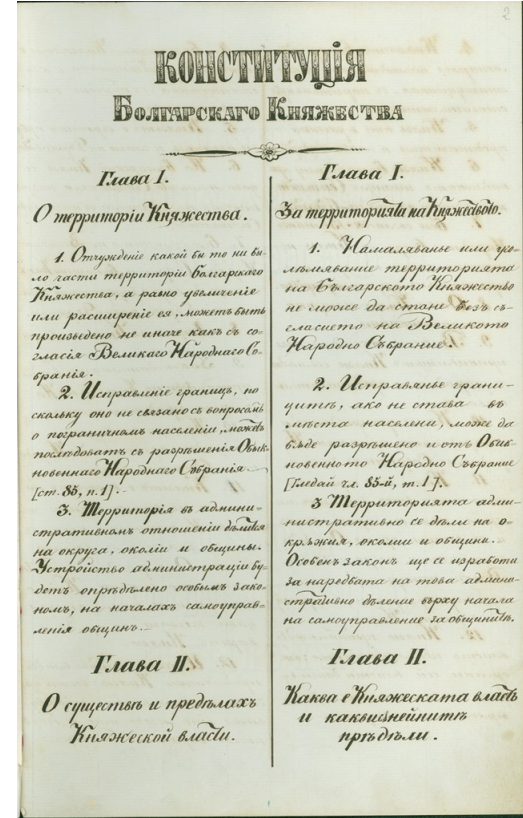 2
КОНСТИТУЦІЯ
БОЛГАРСКАГО КНЯЖЕСТВА
Глава I.
О территоріи Княжества.
1. Отчужденіе какой бы то ни бы-
ло части территоріи Болгарскаго
Княжества, а равно увеличеніе
или расширеніе ея, можетъ быть
произведено не иначе какъ съ со-
гласія Великаго Народнаго Со-
бранія.
2. Исправленіе границъ, по
скольку оно не связано съ вопросомъ
о пограничномъ населеніи, можетъ
послѣдовать съ разрѣшенія Обык-
новеннаго Народнаго Събранія
[ст. 85, п. 1].
3. Территорія въ админи-
стративномъ отношеніи дѣлится
на округа, околіи и общины.
Устройство администраціи бу-
детъ опредѣлено особымъ зако-
номъ, на началахъ самоуправ-
ленія общинъ.
Глава II.
О существѣ и предѣлахъ
Княжеской власти.
Глава I.
За територията на Княжеството.
1. Намаляванье или уго-
лѣмявание територията
на Българското Княжество
не може да стане безъ съ-
гласието на Великото
Народно Събрание.
2. Исправянье грани-
цитѣ, ако не става въ
мѣста населени, може да
бѫде разрѣшено и отъ Обик-
новенното Народно Събрание
[Гледай чл. 85-й, т. 1].
3 Територията адми-
нистративно се дѣли на о-
крѫжия, околии и общини.
Особенъ законъ ще се изработи
за наредбата на това админи-
стративно дѣление върху начала
на самоуправление за общинитѣ.
Глава II.
Каква е Княжеската власть
и какви нейнитѣ
прѣдѣли.